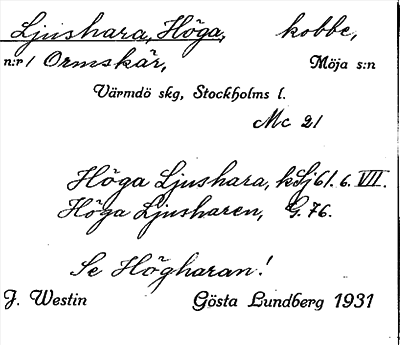 Ljushara, Höga, kobbe,
n:r 1 Ormskär, Möja s:n
Värmdö skg, Stockholms l.
Mc 21
Höga Ljushara, k Sj 61. 6. VII.
Höga Ljusharen, G. 76.
Se Högharan!
J. Westin Gösta Lundberg 1931